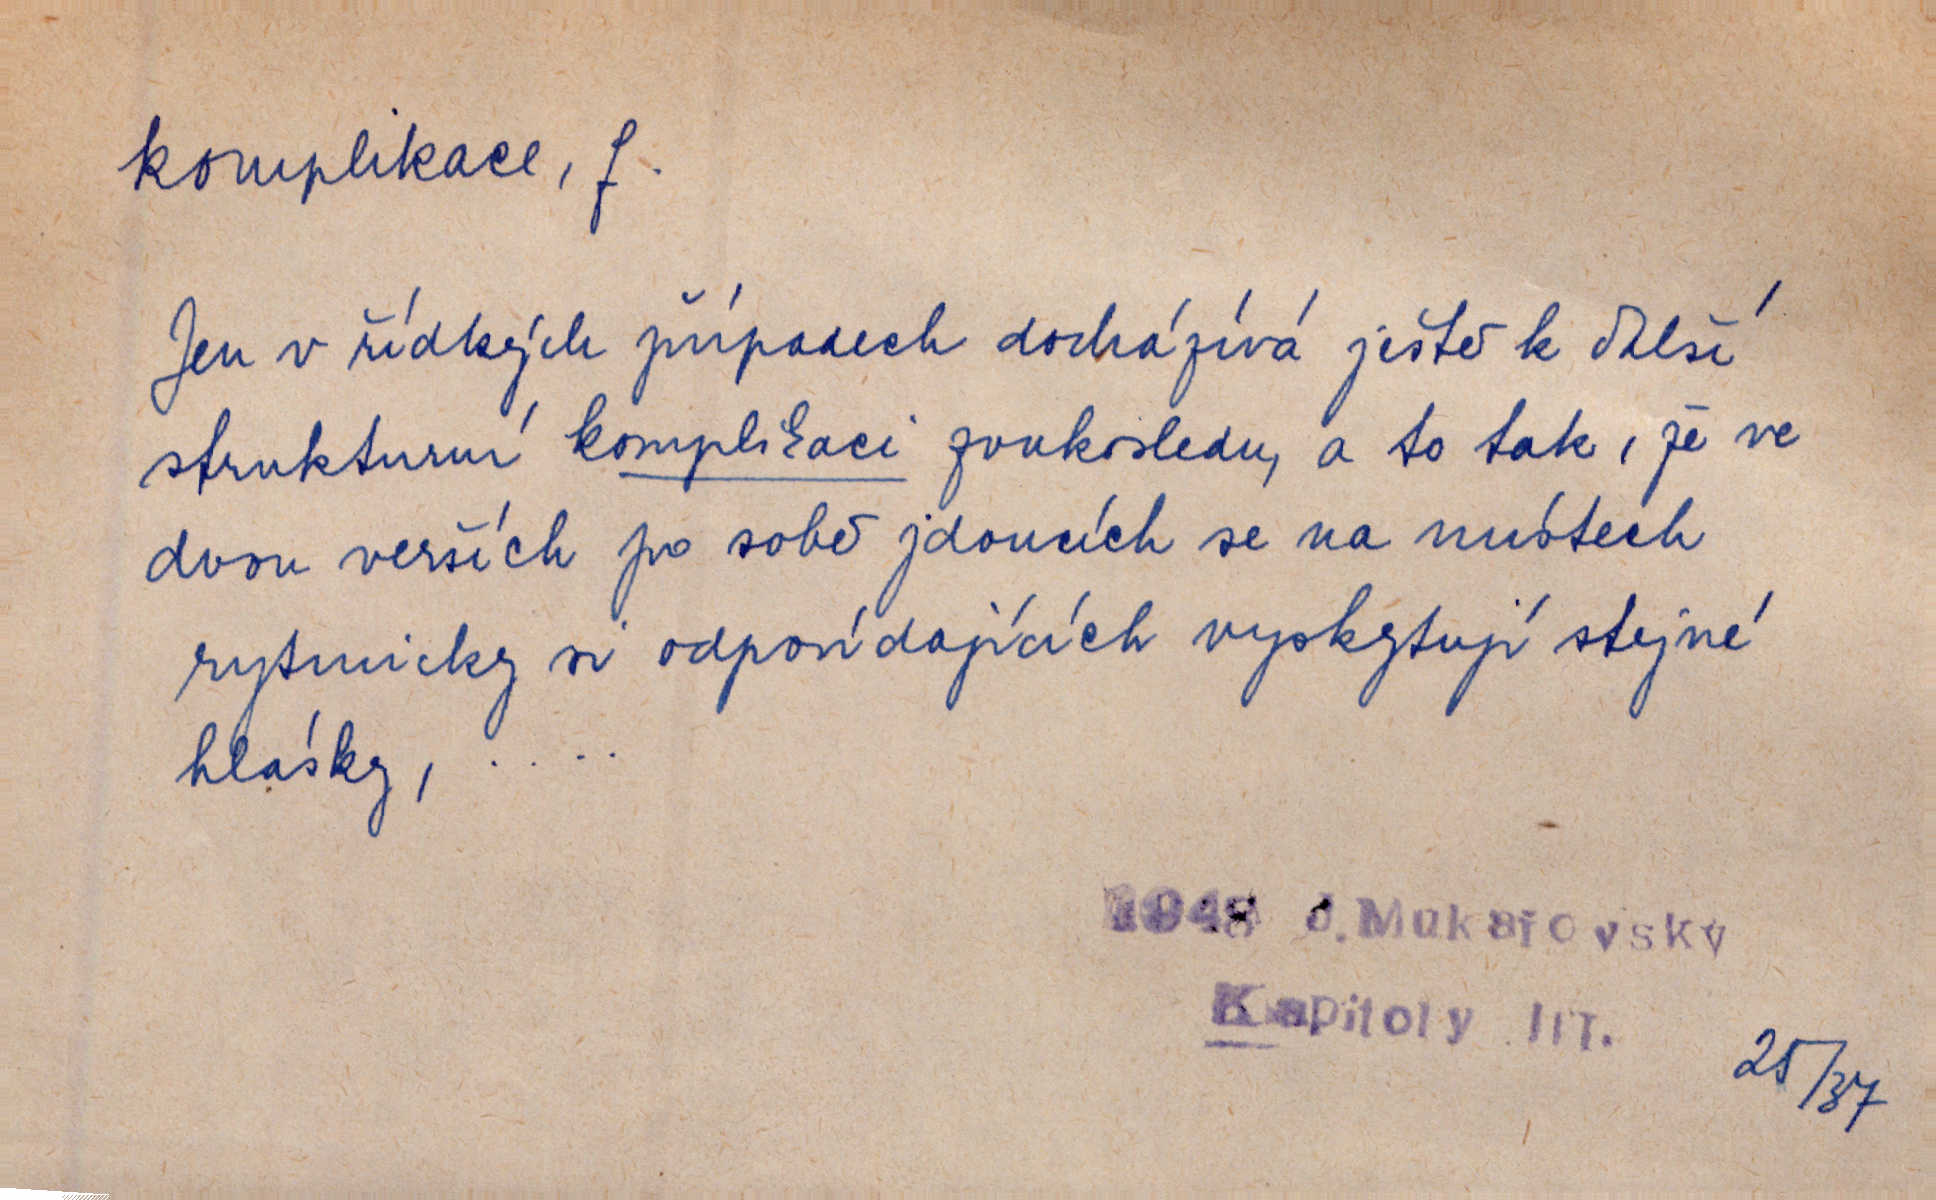 komplikace, f.
Jen v řídkých případech docházívá ještě k další
strukturní komplikaci zvukosledu, a to tak, že ve
dvou verších po sobě jdoucích se na místech
rytmicky si odpovídajících vyskytují stejné
hlásky, .....
1948 J. Mukařovský
Kapitoly III.
25/37